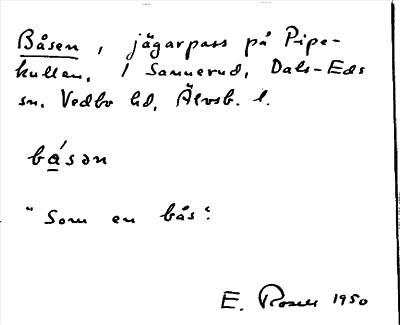 Båsen, jägarpass på Pipe-
kullen, i Sannerud, Dals-Eds
sn, Vedbo hd, Älvsb. l.
bǻsən
"Som en bås".
E. Rosell 1950